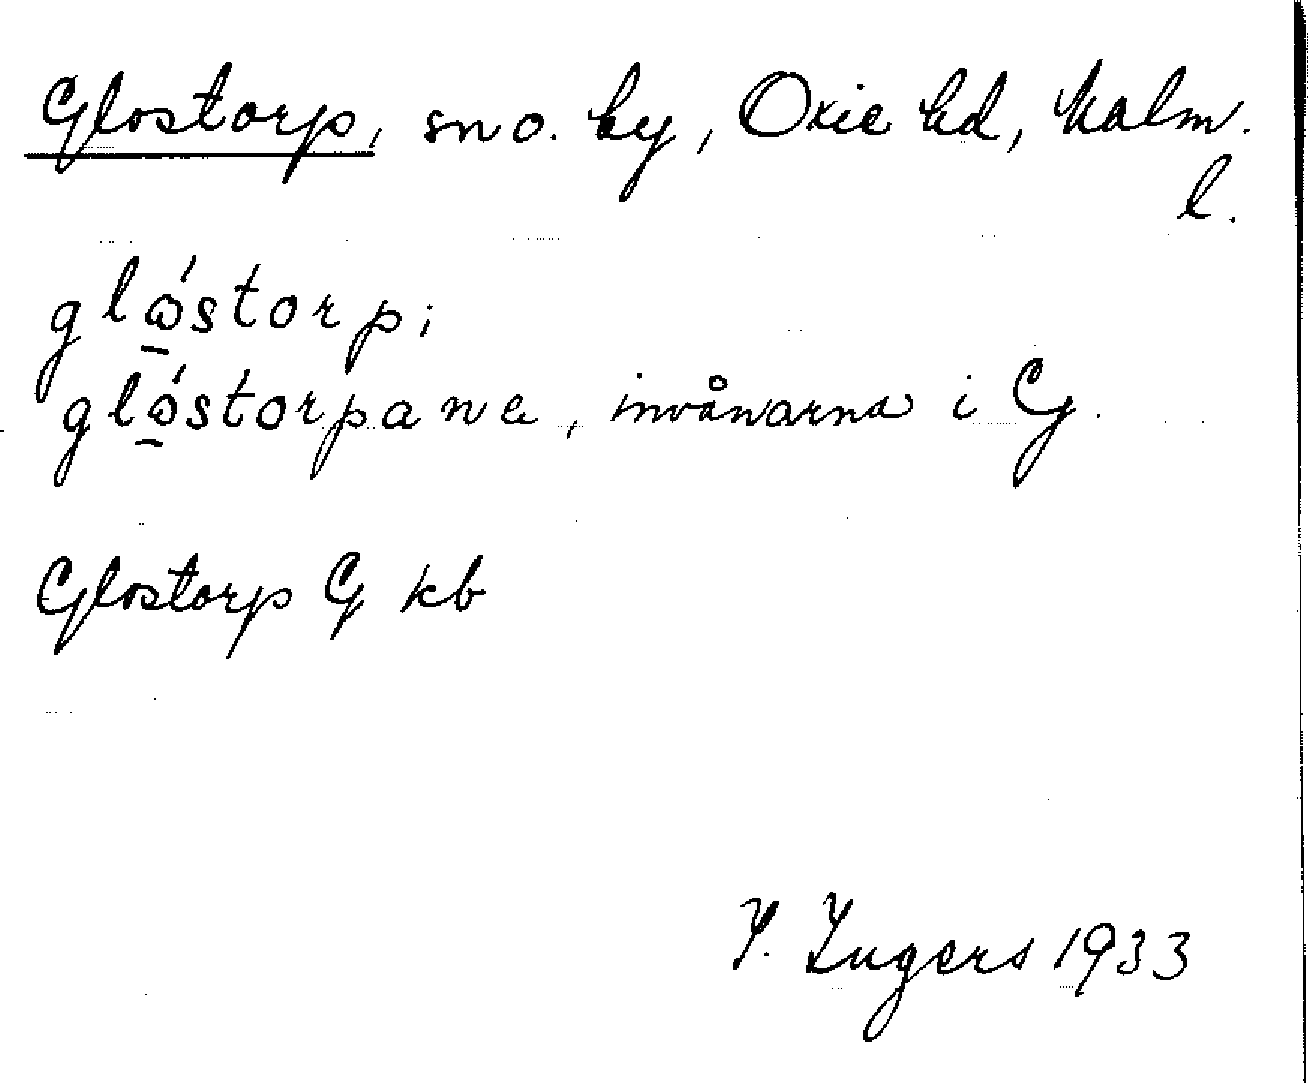 Glostorp, sn o. by, Oxie hd, Malm.
l.
glώ̱storp;
glώ̱storpana, invånarna i G.
Glostorp G kb
I. Ingers 1933